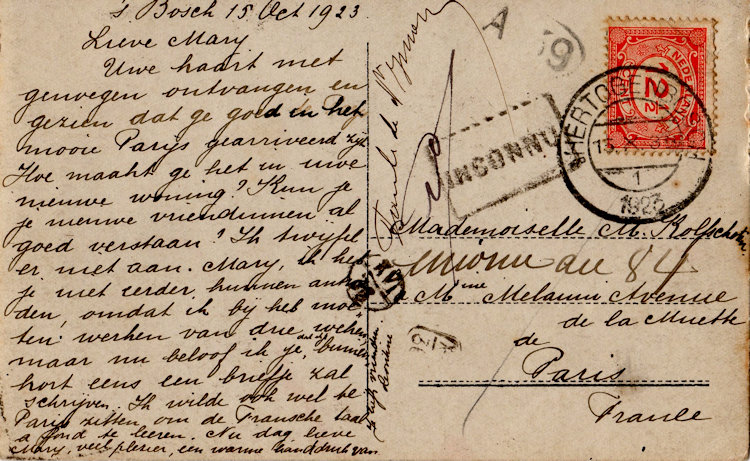 's Bosch 15 Oct 1923
Lieve Mary
Uwe kaart met
genoegen ontvangen en
gezien dat ge goed in het
mooie Parijs gearriveerd zijt
Hoe maakt ge het in uwe
nieuwe woning? Kun je
je nieuwe vriendinnen al
goed verstaan? Ik twijfel
er niet aan. Mary, ik heb
je niet eerder kunnen antw
den, omdat ik bij heb moe
ten werken van drie weken
maar nu beloof ik je, dat ik binnen
kort eens een briefje zal
schrijven. Ik wilde ook wel te
Parijs zitten, om de Fransche taal
a fond te leeren. Nu dag lieve
Mary, veel plezier, een warme handdruk van
je liefh. vriendin
A
59
INCONNU
NEDERLAND
12½
'S HERTOGENBOSCH
1
1923
Mademoiselle M. Kolfschoten
inconnu au 84
Mme Melanie Avenue
de la Muette
de
Paris
France
XVI